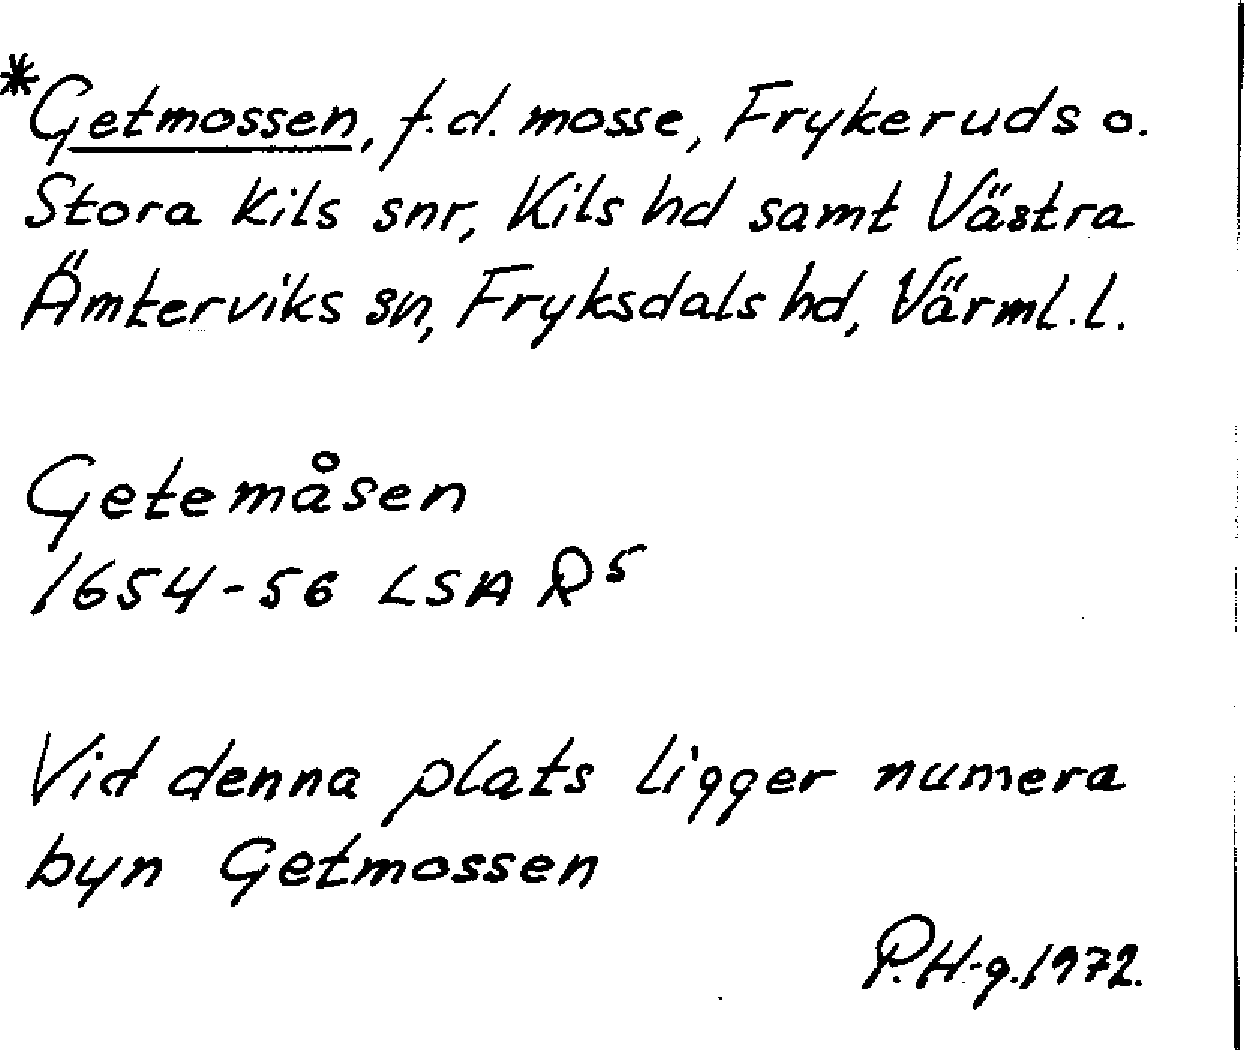 *Getmossen, f.d. mosse, Frykeruds o.
Stora Kils snr, Kils hd samt Västra
Ämterviks sn, Fryksdals hd, Värml. l.
Getemåsen
1654-56 LSA R5
Vid denna plats ligger numera
byn Getmossen
P.H-g. 1972.